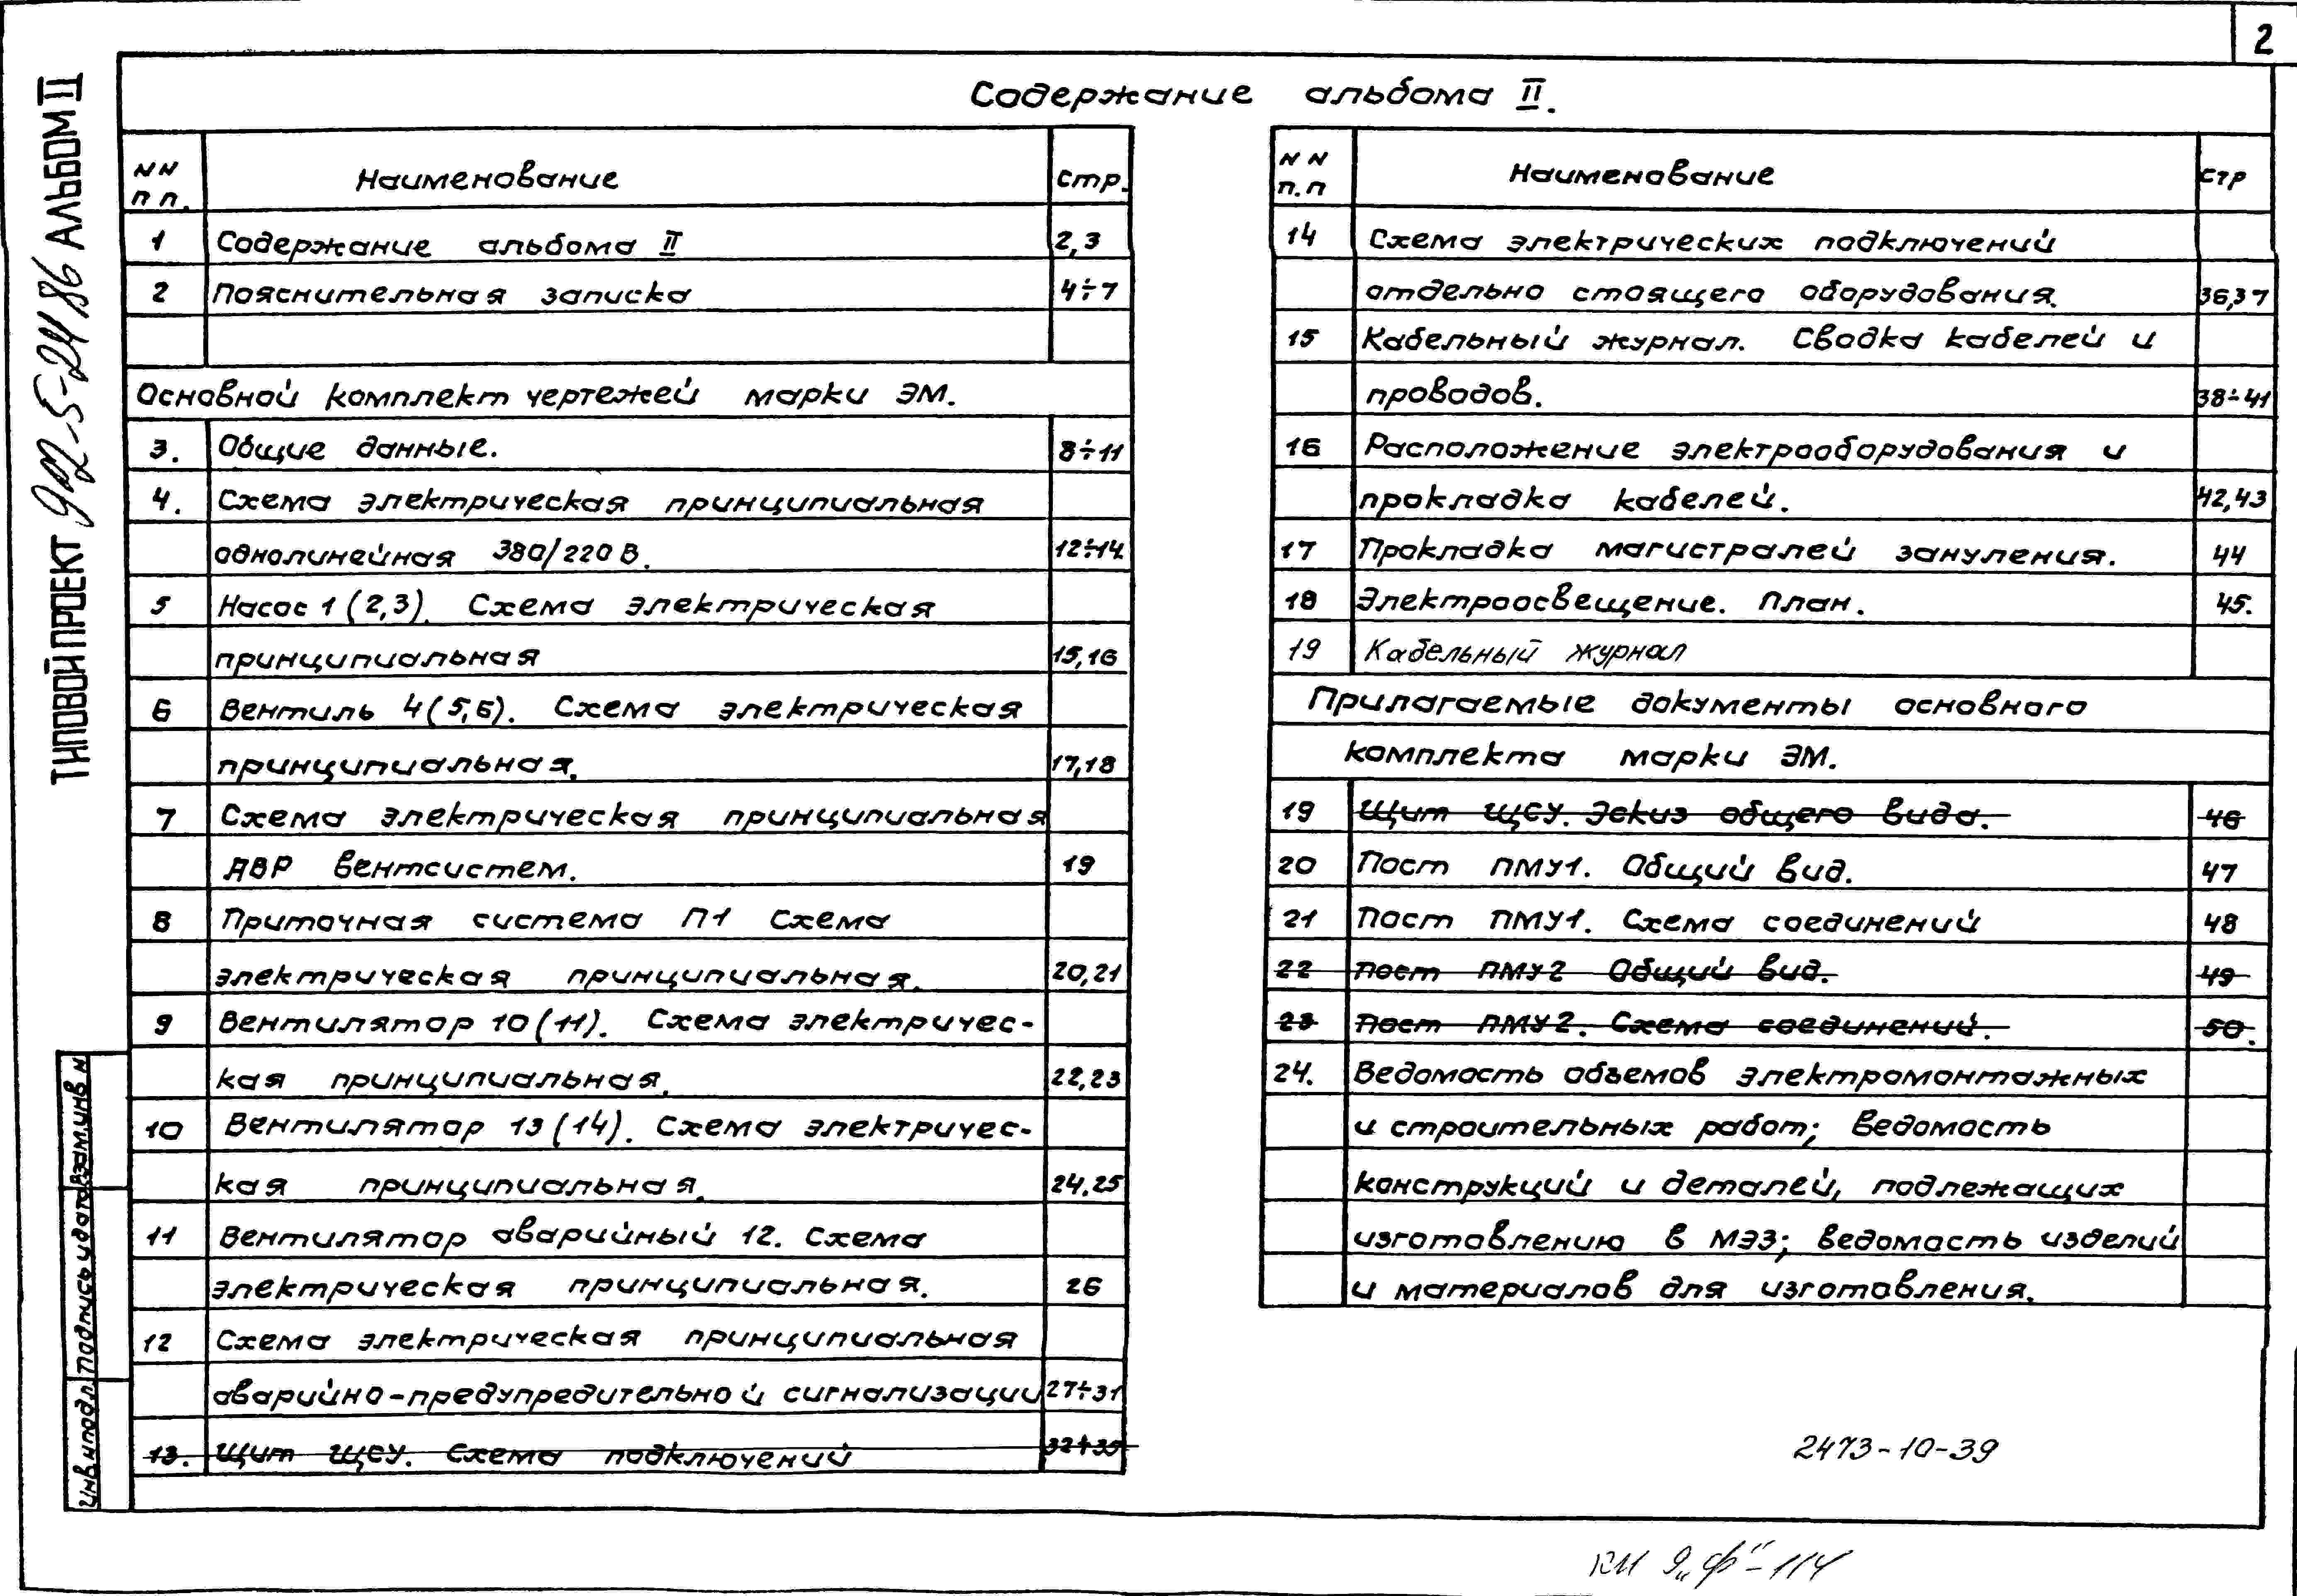 2
ТИПОВОЙ ПРОЕКТ 902-5-24.86 АЛЬБОМ II
Содержание альбома II.
NN Наименование стр.
п п.
1 Содержание альбома II 2,3
2 Пояснительная записка 4÷7
Основной комплект чертежей марки ЭМ.
3. Общие данные. 8÷11
4. Схема электрическая принципиальная
однолинейная 380/220 В. 12÷14
5 Насос 1 (2,3). Схема электрическая
принципиальная 15,16
6 Вентиль 4 (5,6). Схема электрическая
принципиальная. 17,18
7 Схема электрическая принципиальная
АВР вентсистем. 19
8 Приточная система П1 Схема
электрическая принципиальная. 20,21
9 Вентилятор 10 (11). Схема электричес-
кая принципиальная. 22,23
10 Вентилятор 13 (14). Схема электричес-
кая принципиальная. 24,25
11 Вентилятор аварийный 12. Схема
электрическая принципиальная. 26
12 Схема электрическая принципиальная
аварийно-предупредительной сигнализации 27÷31
13. Щит ЩСУ. Схема подключений 32÷35
NN Наименование стр
п.п
14 Схема электрических подключений
отдельно стоящего оборудования. 36,37
15 Кабельный журнал. Сводка кабелей и
проводов. 38÷41
16 Расположение электрооборудования и
прокладка кабелей. 42,43
17 Прокладка магистралей зануления. 44
18 Электроосвещение. План. 45.
19 Кабельный журнал
Прилагаемые документы основного
комплекта марки ЭМ.
19 Щит ЩСУ. Эскиз общего вида. 46
20 Пост ПМУ1. Общий вид. 47
21 Пост ПМУ1. Схема соединений 48
22 Пост ПМУ2 Общий вид. 49
23 Пост ПМУ2. Схема соединений. 50.
24. Ведомость объемов электромонтажных
и строительных работ; Ведомость
конструкций и деталей, подлежащих
изготовлению в МЭЗ; ведомость изделий
и материалов для изготовления.
Инв.N подл. Подпись и дата Взам.инв N
2473-10-39